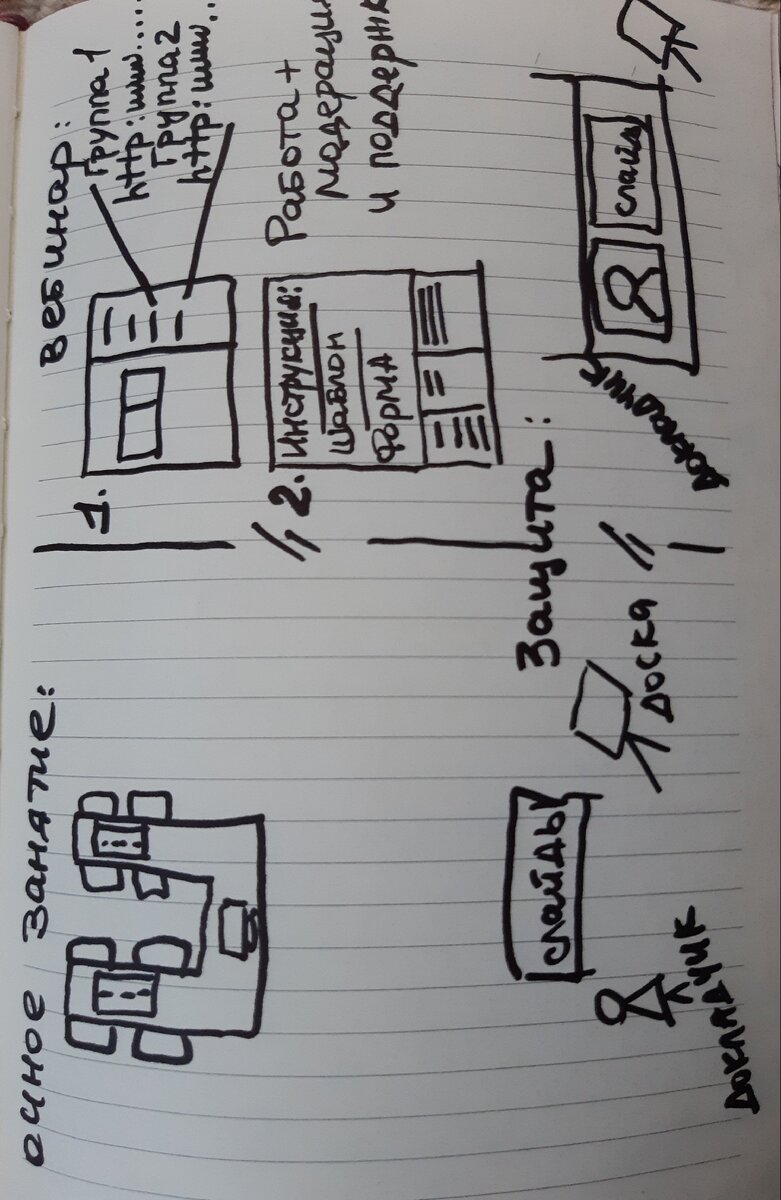 очное занятие:
вебинар:
1.
Группа 1
http:www.....
Группа 2
http:www...
2.
Инструкция:
Шаблон
Форма
Работа +
модерация
и поддержк
Защита:
слайды
доска
докладчик
//
//
слайд
докладчик